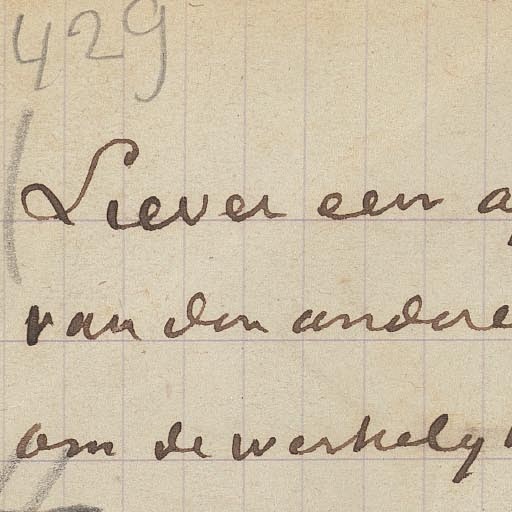 429
Liever een a
van den andere
om de werkelij